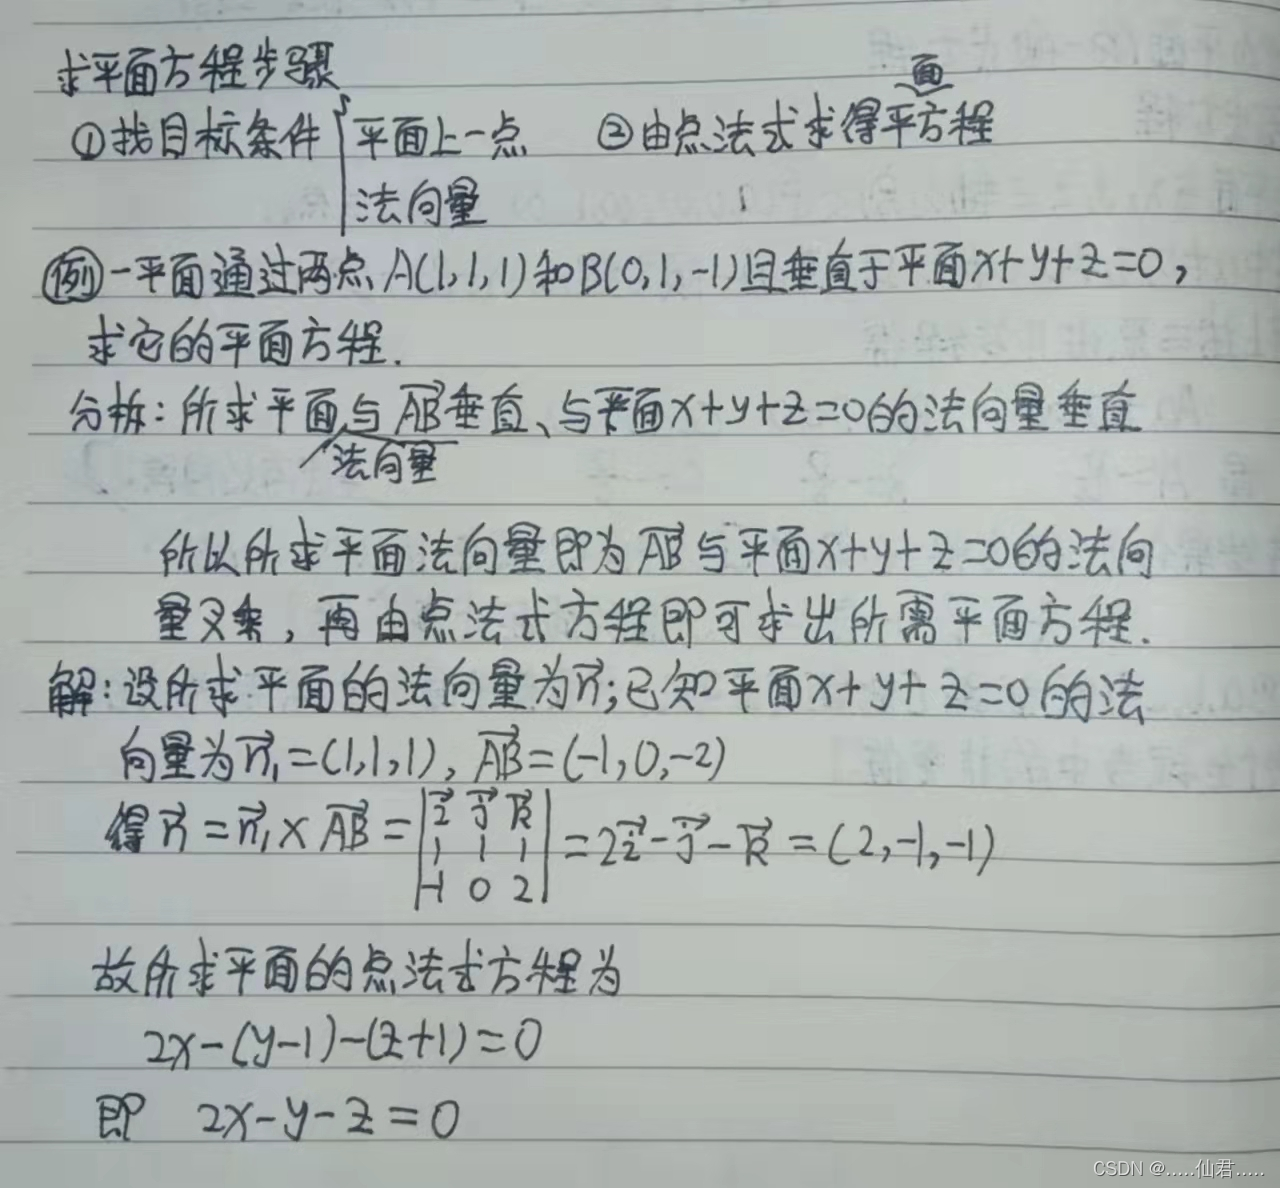 求平面方程步骤
①找目标条件{平面上一点 ②由点法式求得平面方程
法向量
例 一平面通过两点A(1,1,1)和B(0,1,-1)且垂直于平面x+y+z=0,
求它的平面方程.
分析:所求平面与AB垂直、与平面x+y+z=0的法向量垂直
法向量
所以所求平面法向量即为AB与平面x+y+z=0的法向
量叉乘,再由点法式方程即可求出所需平面方程.
解:设所求平面的法向量为n⃗;已知平面x+y+z=0的法
向量为n⃗₁=(1,1,1), AB⃗=(-1,0,-2)
得n⃗=n⃗₁×AB⃗=|i⃗ j⃗ k⃗|=2i⃗-j⃗-k⃗=(2,-1,-1)
|1 1 1|
|-1 0 2|
故所求平面的点法式方程为
2x-(y-1)-(z+1)=0
即 2x-y-z=0
CSDN @.....仙君.....